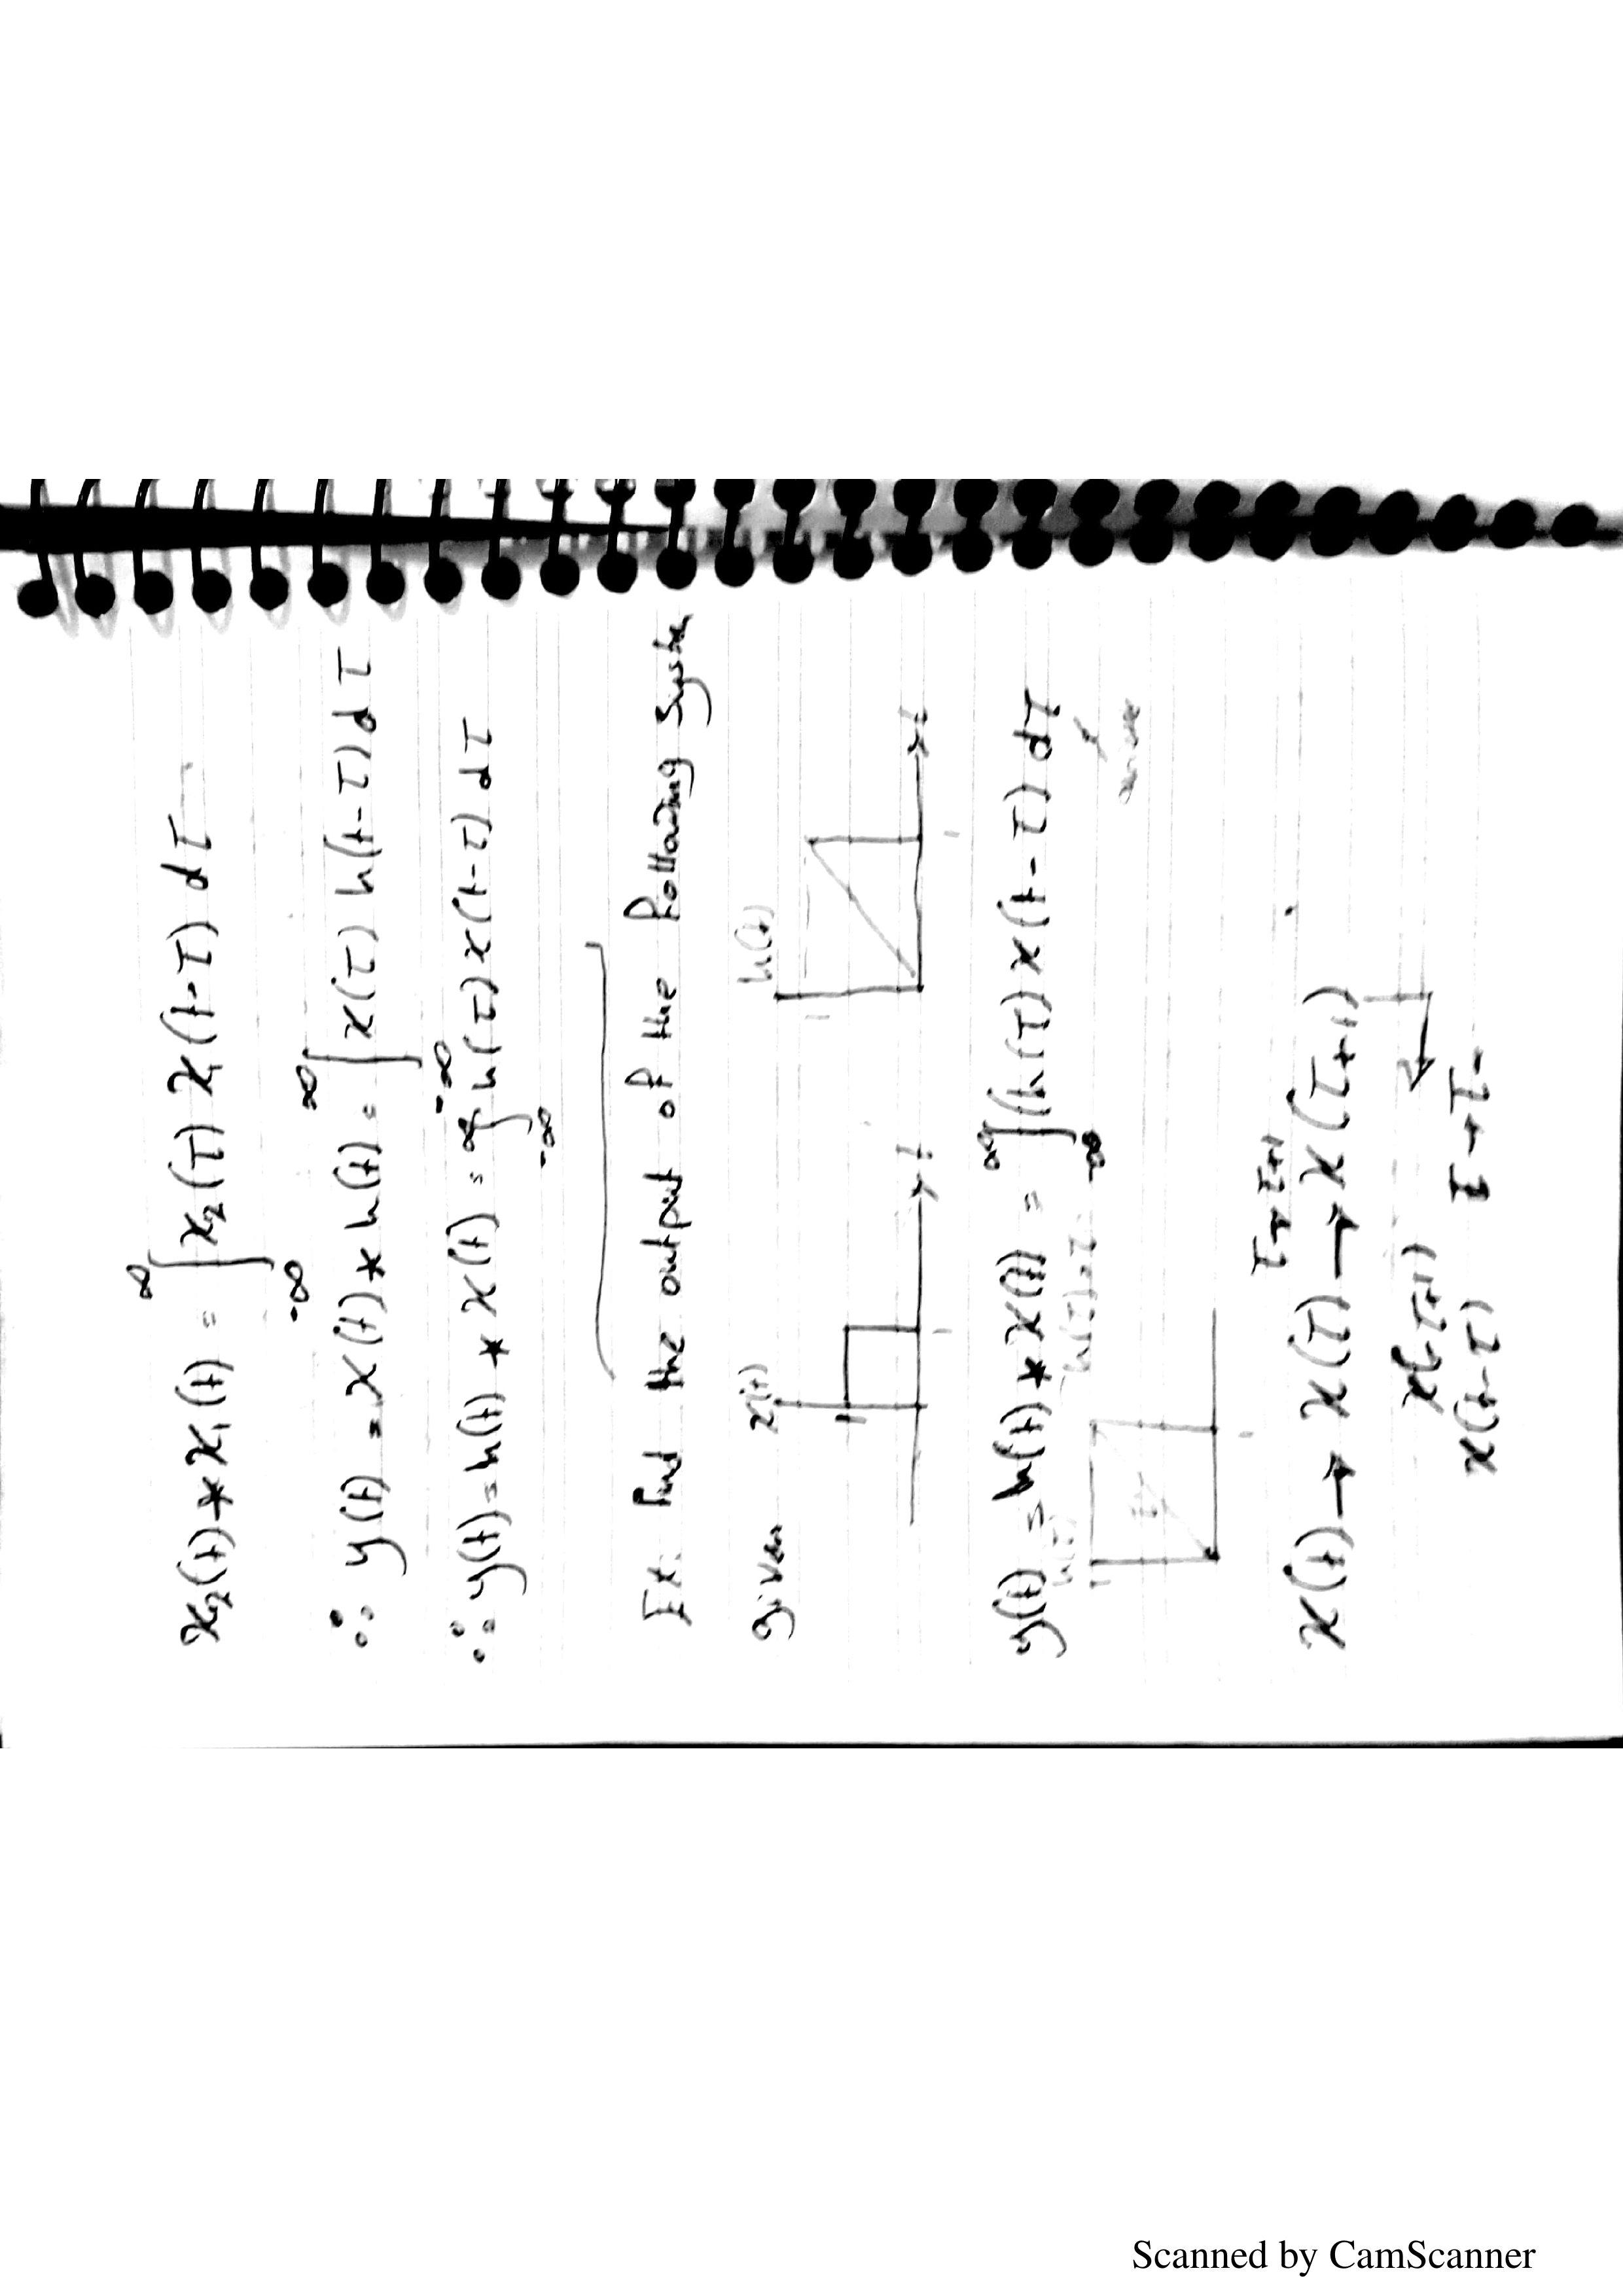 x₂(t) * x₁(t) = ∫_{-∞}^{∞} x₂(τ) x₁(t-τ) dτ
∴ y(t) = x(t) * h(t) = ∫_{-∞}^{∞} x(τ) h(t-τ) dτ
∴ y(t) = h(t) * x(t) = ∫_{-∞}^{∞} h(τ) x(t-τ) dτ
Ex: Find the output of the Following System
given
x(t)
1
1
t
h(t)
1
1
t
y(t) = h(t) * x(t) = ∫_{-∞}^{∞} h(τ) x(t-τ) dτ
h(τ) = τ
1
1
τ → τ+t
x(t) → x(τ) → x(τ+t)
x(-τ+t)
τ → -τ
x(t-τ)
Scanned by CamScanner